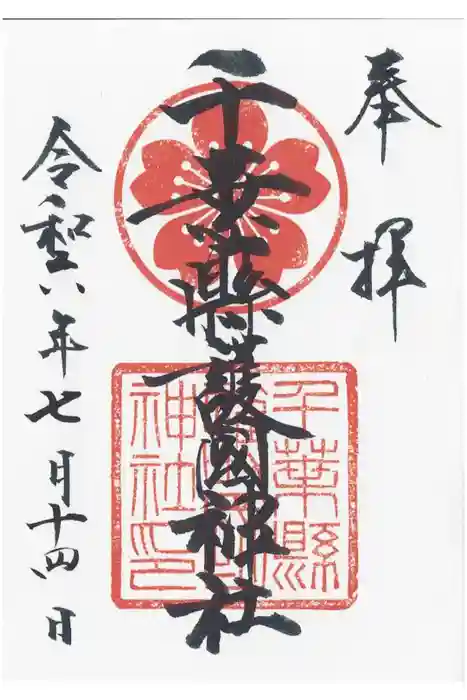 奉拝
千葉縣護國神社
千葉縣
護國
神社印
令和六年七月十四日